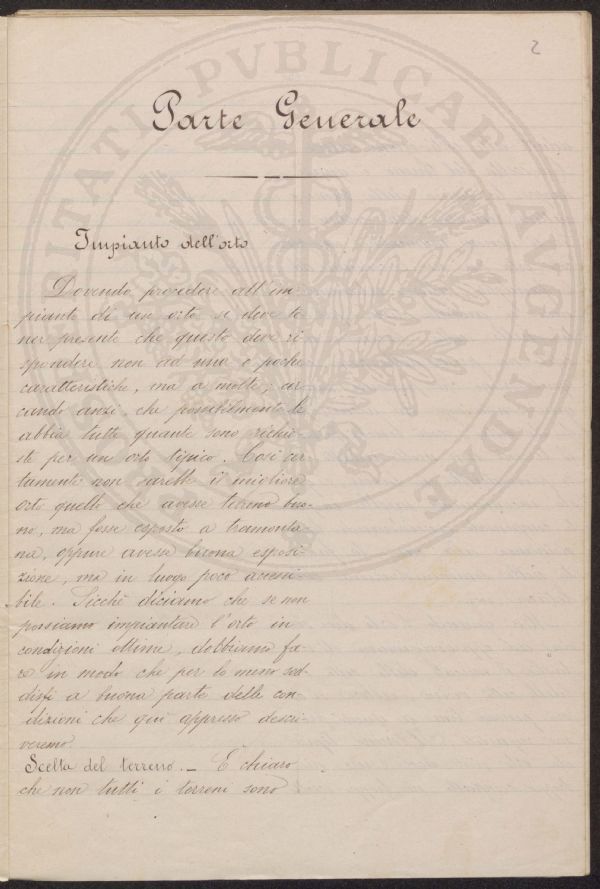 2
Parte Generale
Impianto dell'orto
Dovendo procedere all'im-
pianto di un orto si deve te
ner presente che questo deve ri
spondere non ad una o poche
caratteristiche, ma a molte; cer
cando anzi, che possibilmente le
abbia tutte quante sono richie-
ste per un orto tipico. Così cer-
tamente non sarebbe il migliore
orto quello che avesse terreno buo-
no, ma fosse esposto a tramonta-
na, oppure avesse buona esposi-
zione, ma in luogo poco accessi-
bile. Sicchè diciamo che se non
possiamo impiantare l'orto in
condizioni ottime, dobbiamo fa-
re in modo che per lo meno sod-
disfi a buona parte delle con-
dizioni che qui appresso descri-
veremo.
Scelta del terreno. – È chiaro
che non tutti i terreni sono
PUBLICAE AUGENDAE